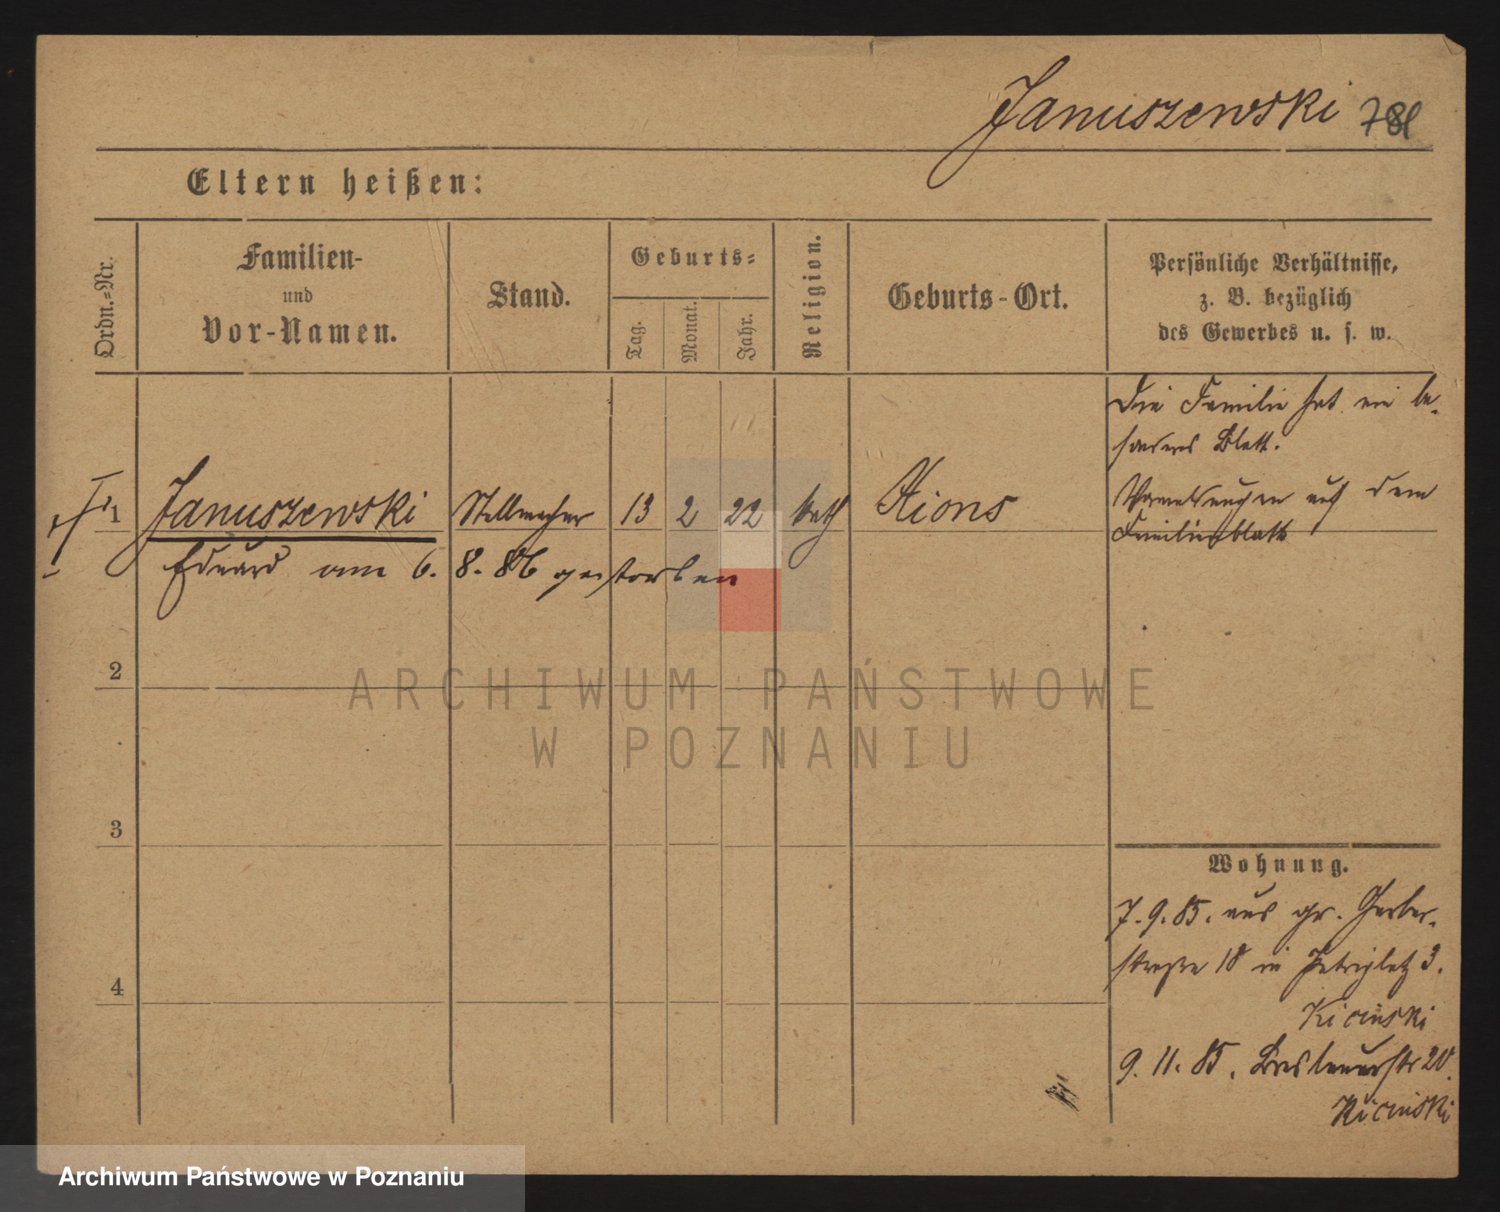 Januszewski 781
Eltern heißen:
Ordn.=Nr.
Familien-
und
Vor-Namen.
Stand.
Geburts=
Tag.
Monat.
Jahr.
Religion.
Geburts-Ort.
Persönliche Verhältnisse,
z. B. bezüglich
des Gewerbes u. s. w.
Die Familie hat ein be-
sonderes Blatt.
1 Januszewski Stellmacher 13 2 22 kath Xions
Vermerkungen auf dem
Familienblatt
Eduard am 6. 8. 86 gestorben
2
3
4
ARCHIWUM PAŃSTWOWE
W POZNANIU
Wohnung.
7. 9. 85. aus gr. Gerber-
straße 18 in Petriplatz 3.
Kicinski
9. 11. 85. Breslauerstr 20.
Kicinski
Archiwum Państwowe w Poznaniu